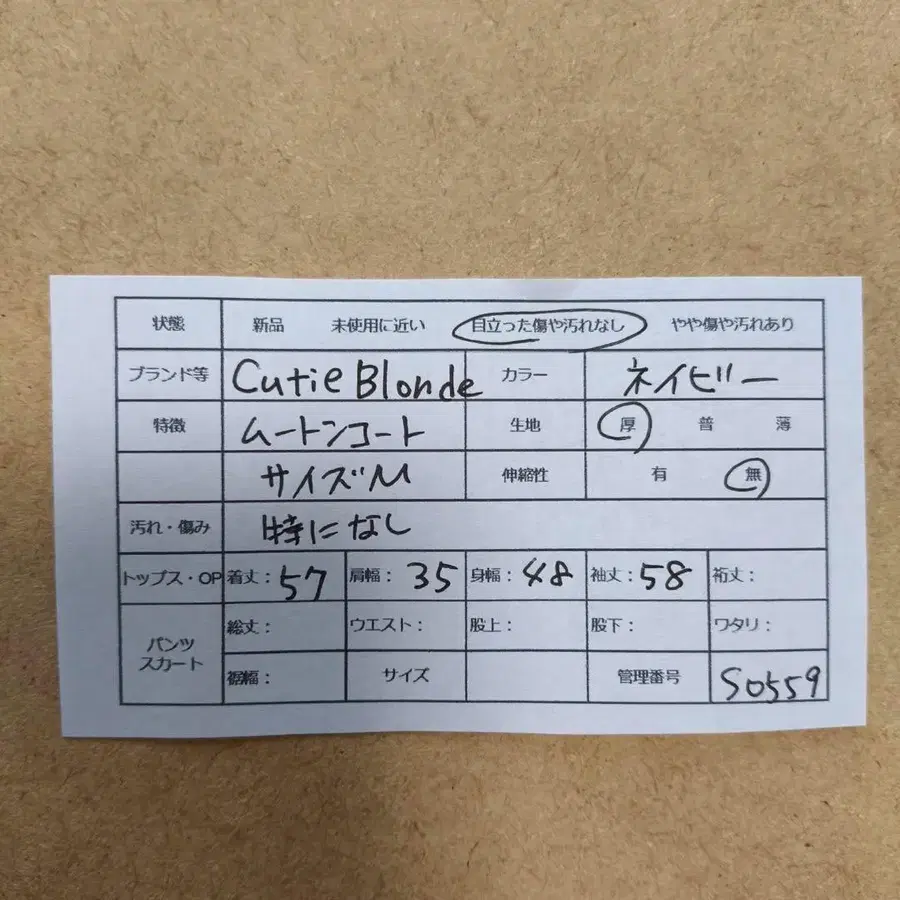 状態 新品 未使用に近い 目立った傷や汚れなし やや傷や汚れあり
ブランド等 Cutie Blonde カラー ネイビー
特徴 ムートンコート 生地 厚 普 薄
サイズM 伸縮性 有 無
汚れ・傷み 特になし
トップス・OP 着丈：57 肩幅：35 身幅：48 袖丈：58 裄丈：
パンツ スカート 総丈： ウエスト： 股上： 股下： ワタリ：
裾幅： サイズ 管理番号 S0559